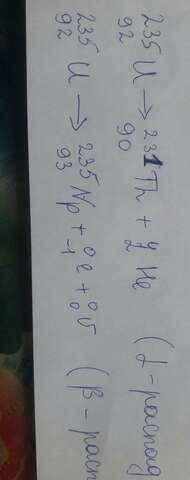 ²³⁵₉₂U → ²³¹₉₀Th + ⁴₂He (α-распад
²³⁵₉₂U → ²³⁵₉₃Np + ⁰₋₁e + ⁰₀ν̃ (β-расп